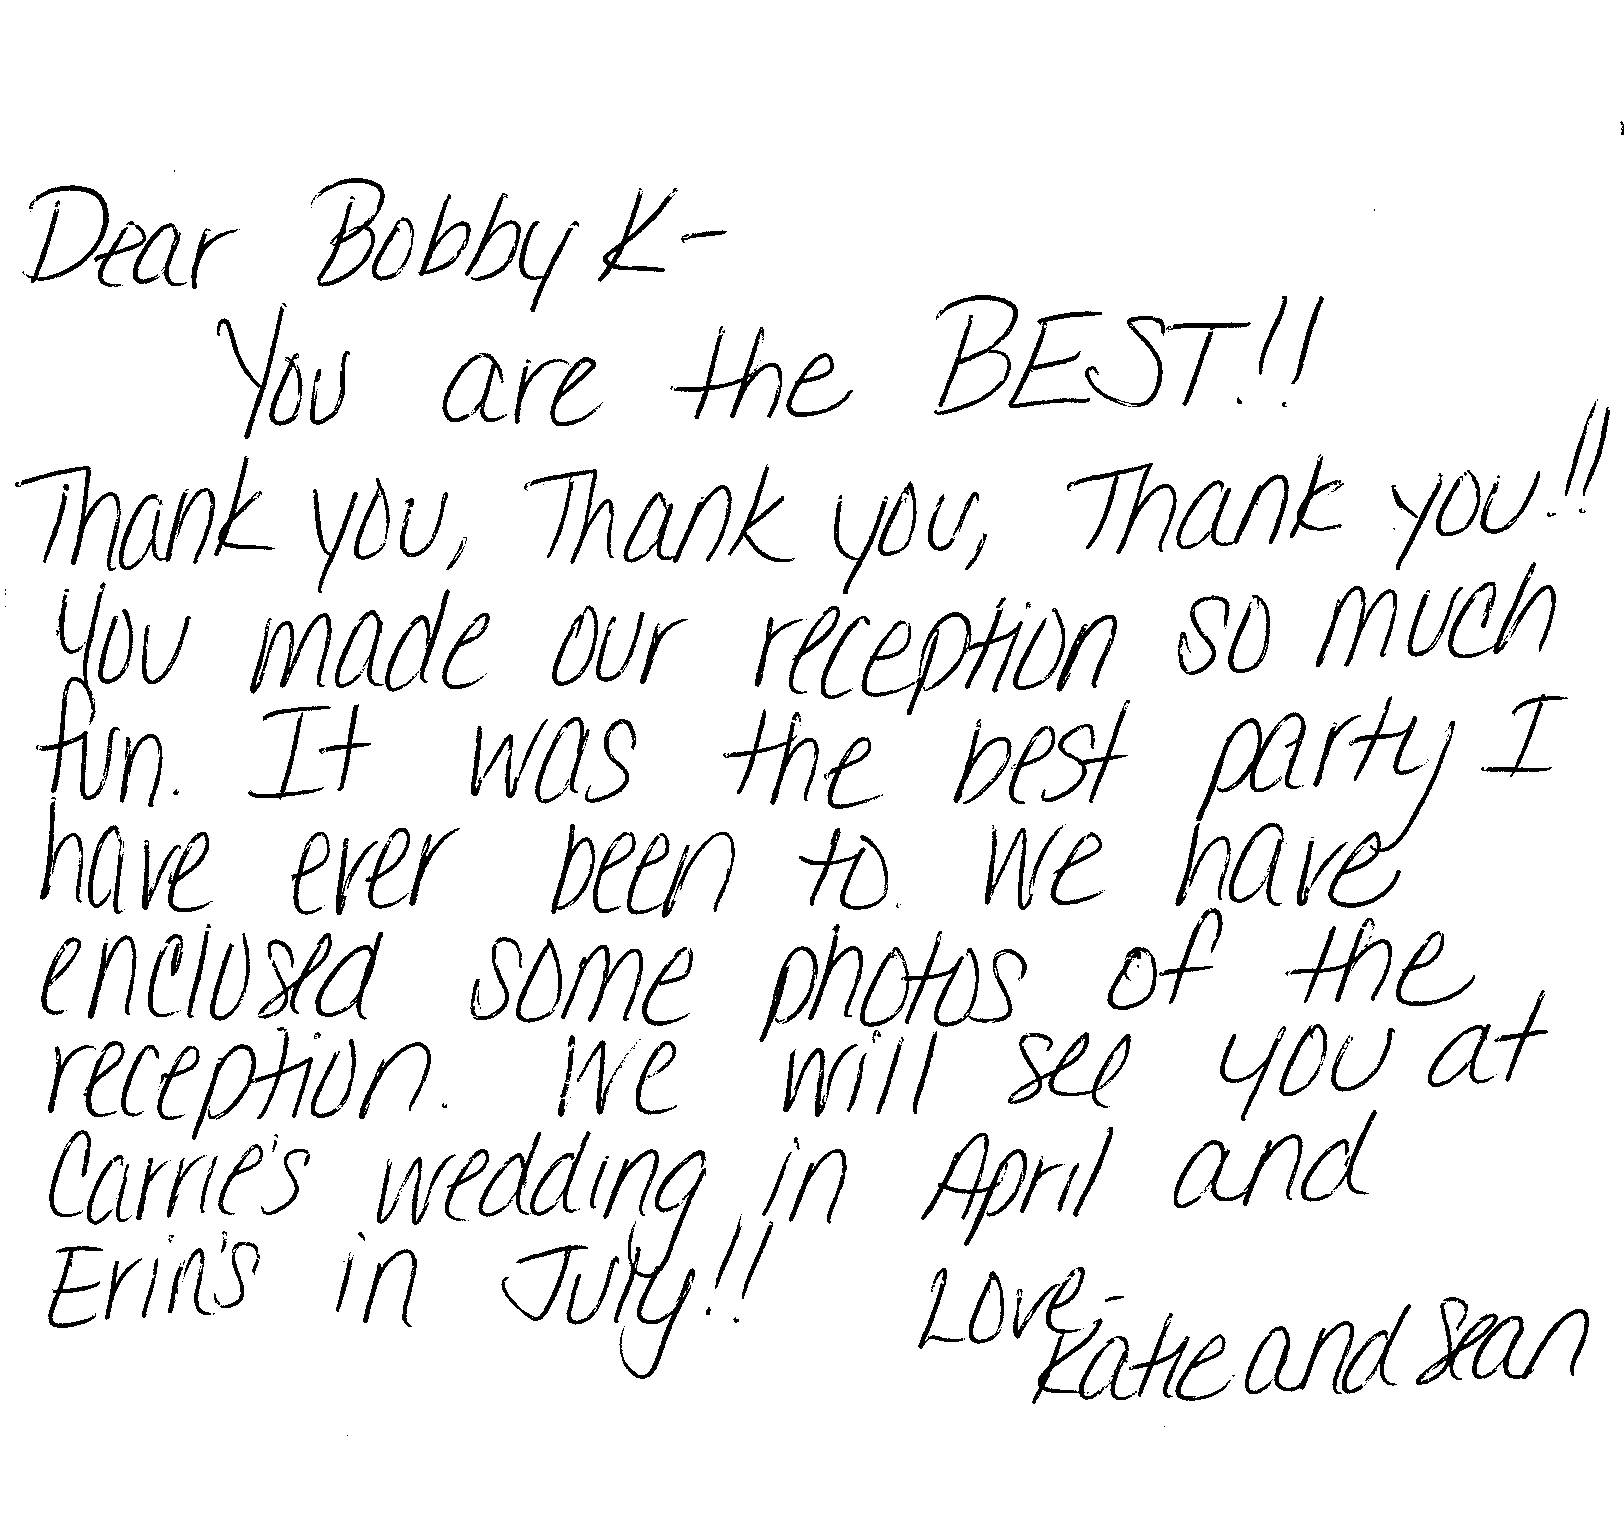 Dear Bobby K-
You are the BEST!!
Thank you, Thank you, Thank you!!
You made our reception so much
fun. It was the best party I
have ever been to. We have
enclosed some photos of the
reception. We will see you at
Carrie's wedding in April and
Erin's in July!!
Love,-
Katie and Sean